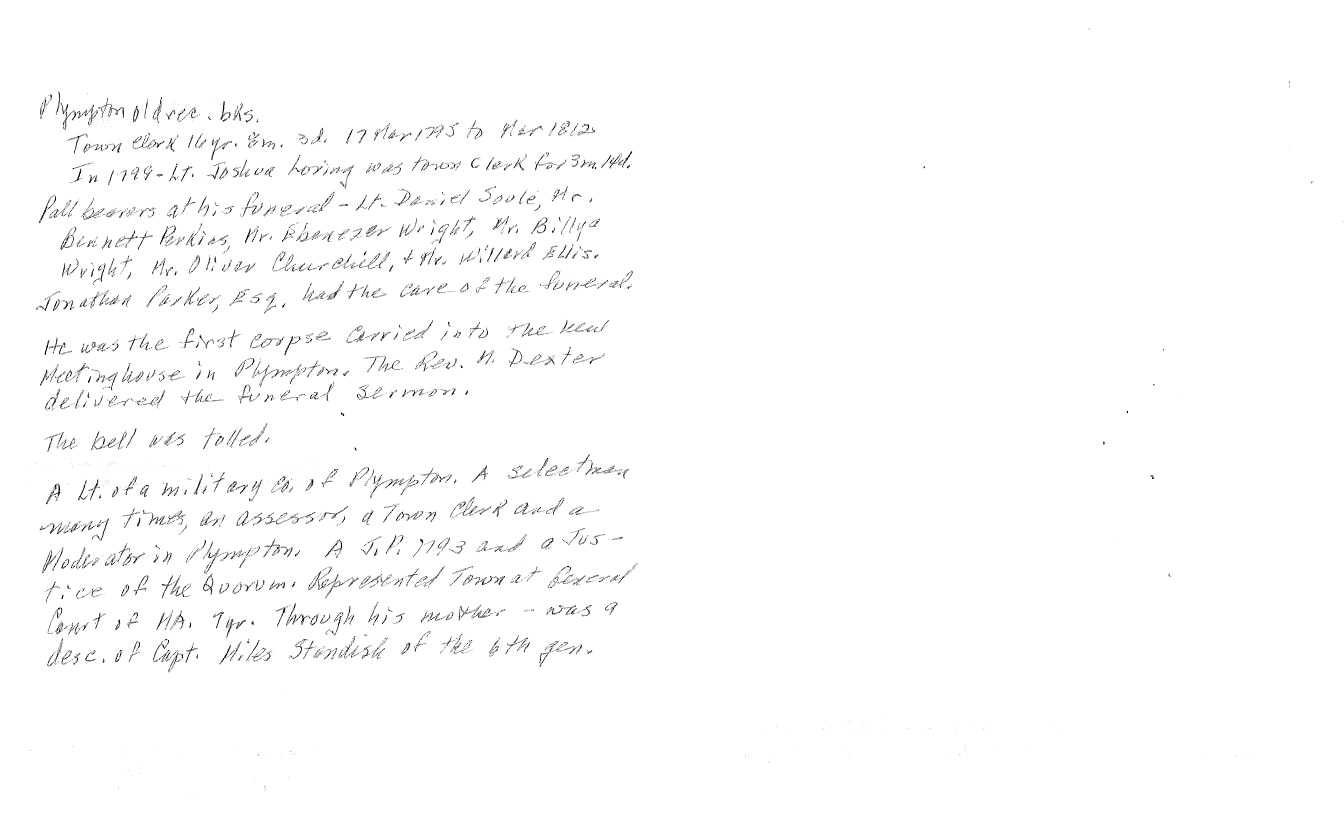 Plympton old rec. bks.
Town Clerk 16 yr. 8m. 3d. 17 Mar 1795 to Mar 1812
In 1799 - Lt. Joshua Loring was town Clerk for 3m. 14d.
Pall bearers at his funeral - Lt. Daniel Soule, Mr.
Bennett Perkins, Mr. Ebenezer Wright, Mr. Billya
Wright, Mr. Oliver Churchill, + Mr. Willard Ellis.
Jonathan Parker, Esq. had the care of the funeral.
He was the first corpse carried into the new
Meetinghouse in Plympton. The Rev. M. Dexter
delivered the funeral sermon.
The bell was tolled.
A Lt. of a military Co. of Plympton. A selectman
many times, an assessor, a Town Clerk and a
Moderator in Plympton. A J.P. 1793 and a Jus-
tice of the Quorum. Represented Town at General
Court of MA. 9yr. Through his mother - was a
desc. of Capt. Miles Standish of the 6th gen.